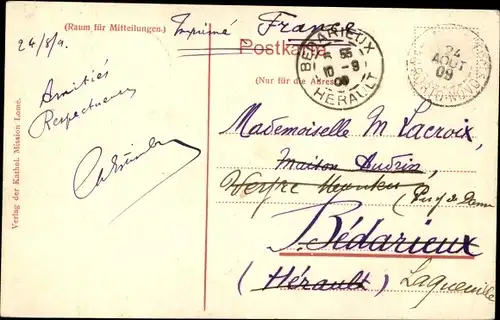 (Raum für Mitteilungen.)
24/8/9.
Imprimé France
Postkarte
(Nur für die Adresse)
BEDARIEUX
55
10 - 9
09
HERAULT
24
AOUT
09
PORTO-NOVO
Amitiés
Respectueuses
Mademoiselle M Lacroix,
Maison Andrin
(Puy de Dome
Bédarieux
(Hérault) Laqueuille
Verlag der Kathol. Mission Lomé.